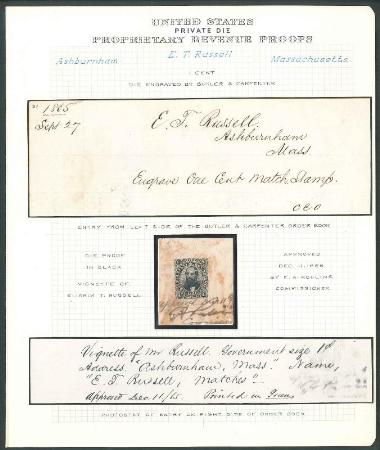 UNITED STATES
PRIVATE DIE
PROPRIETARY REVENUE PROOFS
Ashburnham E. T. Russell Massachusetts
1 CENT
DIE ENGRAVED BY BUTLER & CARPENTER
1865
Sept 27
E. T. Russell.
Ashburnham
Mass.
Engrave One Cent Match Stamp.
ENTRY FROM LEFT SIDE OF THE BUTLER & CARPENTER ORDER BOOK
DIE PROOF
IN BLACK
VIGNETTE OF
T. RUSSELL
APPROVED
BY E. A. ROLLINS
COMMISSIONER
Vignette of Mr Russell. Government size
Address, "Ashburnham, Mass." Name,
"E. T. Russell, Matches".
Approved Dec 11/65. Printed in
PHOTOSTAT OF ENTRY ON RIGHT SIDE OF ORDER BOOK